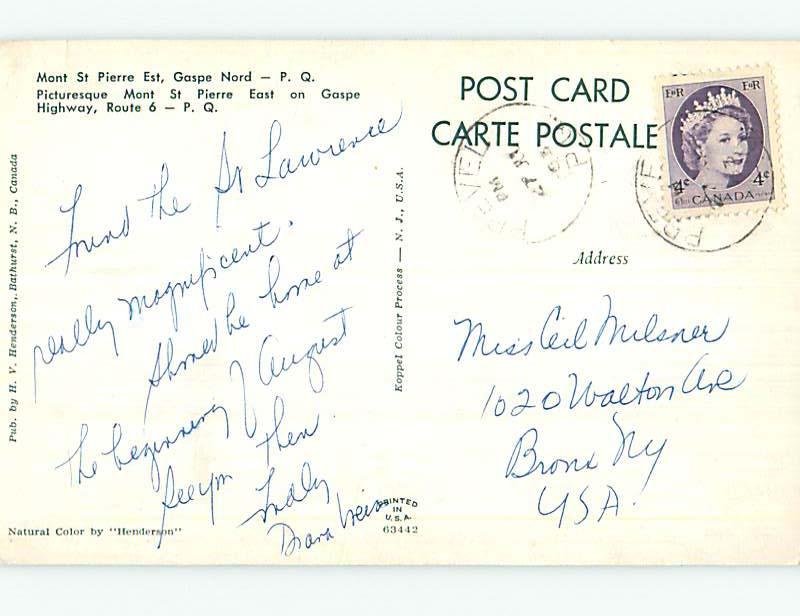 Mont St Pierre Est, Gaspe Nord — P. Q.
Picturesque Mont St Pierre East on Gaspe
Highway, Route 6 — P. Q.
POST CARD
CARTE POSTALE
EIIR EIIR
4¢ 4¢
CANADA
PM
27
Found the St Lawrence
really magnificent.
Should be home at
the beginning of August
See you then
Diana
Address
Miss Ceil Milsner
1020 Walton Ave
Bronx NY
USA.
Pub. by H. V. Henderson, Bathurst, N. B., Canada
Koppel Colour Process — N. J., U.S.A.
Natural Color by "Henderson"
PRINTED
IN
U.S.A.
63442